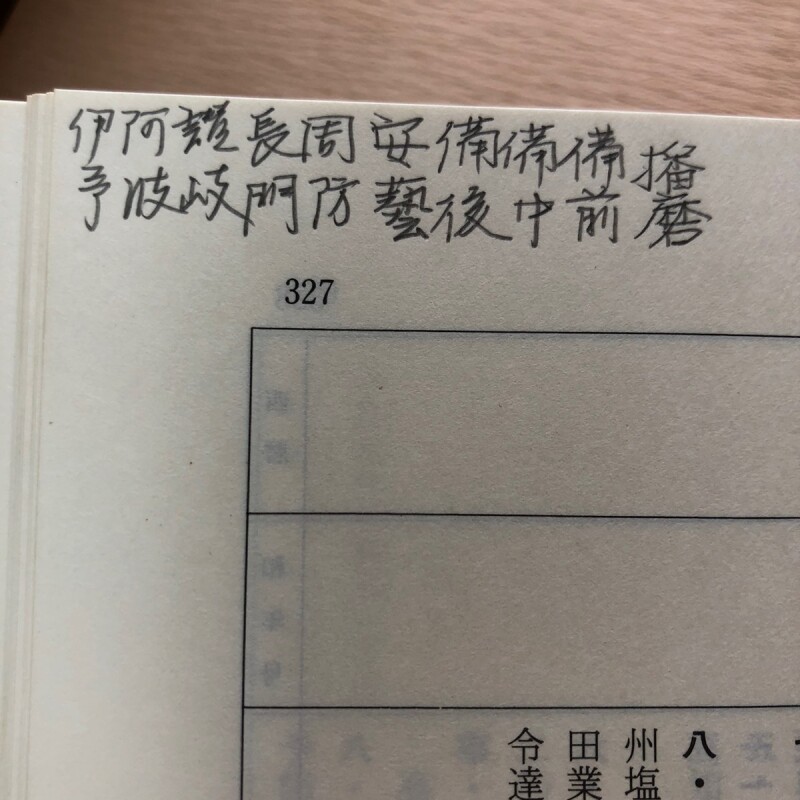 播磨
備前
備中
備後
安藝
周防
長門
讃岐
阿波
伊予
327
八・
州塩
田業
令達